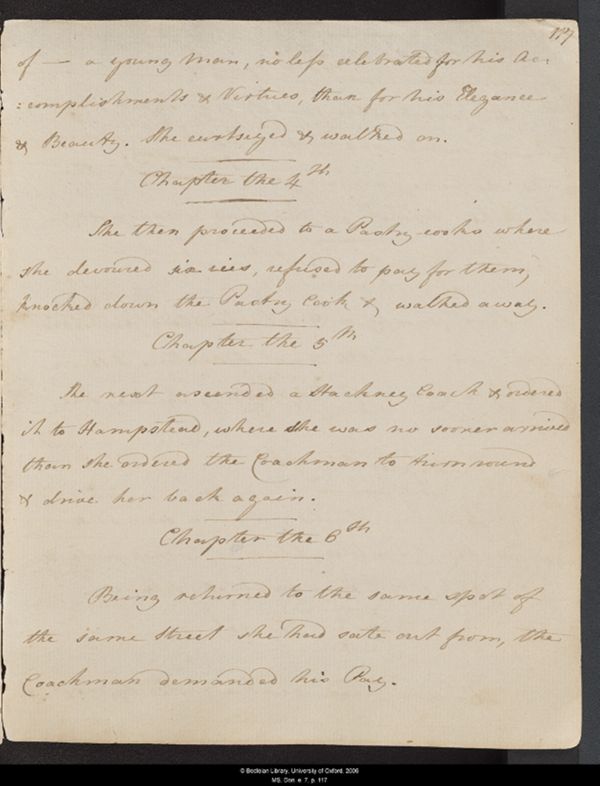 117
of — a young Man, no less celebrated for his Ac:
:complishments & Virtues, than for his Elegance
& Beauty. She curtseyed & walked on.
Chapter the 4th
She then proceeded to a Pastry-cooks where
she devoured six ices, refused to pay for them,
knocked down the Pastry Cook & walked away.
Chapter the 5th
She next ascended a Hackney Coach & ordered
it to Hampstead, where she was no sooner arrived
than she ordered the Coachman to turn round
& drive her back again.
Chapter the 6th
Being returned to the same spot of
the same Street she had sate out from, the
Coachman demanded his Pay.
© Bodleian Library, University of Oxford, 2006
MS. Don. e. 7, p. 117